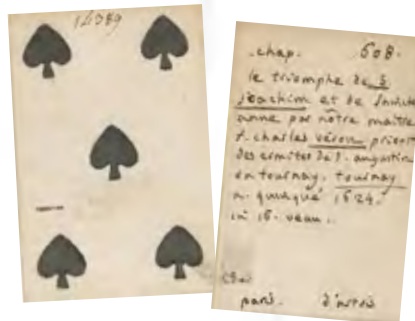 14389
chap. 608.
le triomphe de S.
joachim et de Sainte
anne par notre maitre
f. charles véron prieur
des ermites de S. augustin
en tournay. tournay
a. quinqué 1624.
in 16. veau.
paris. d'artois